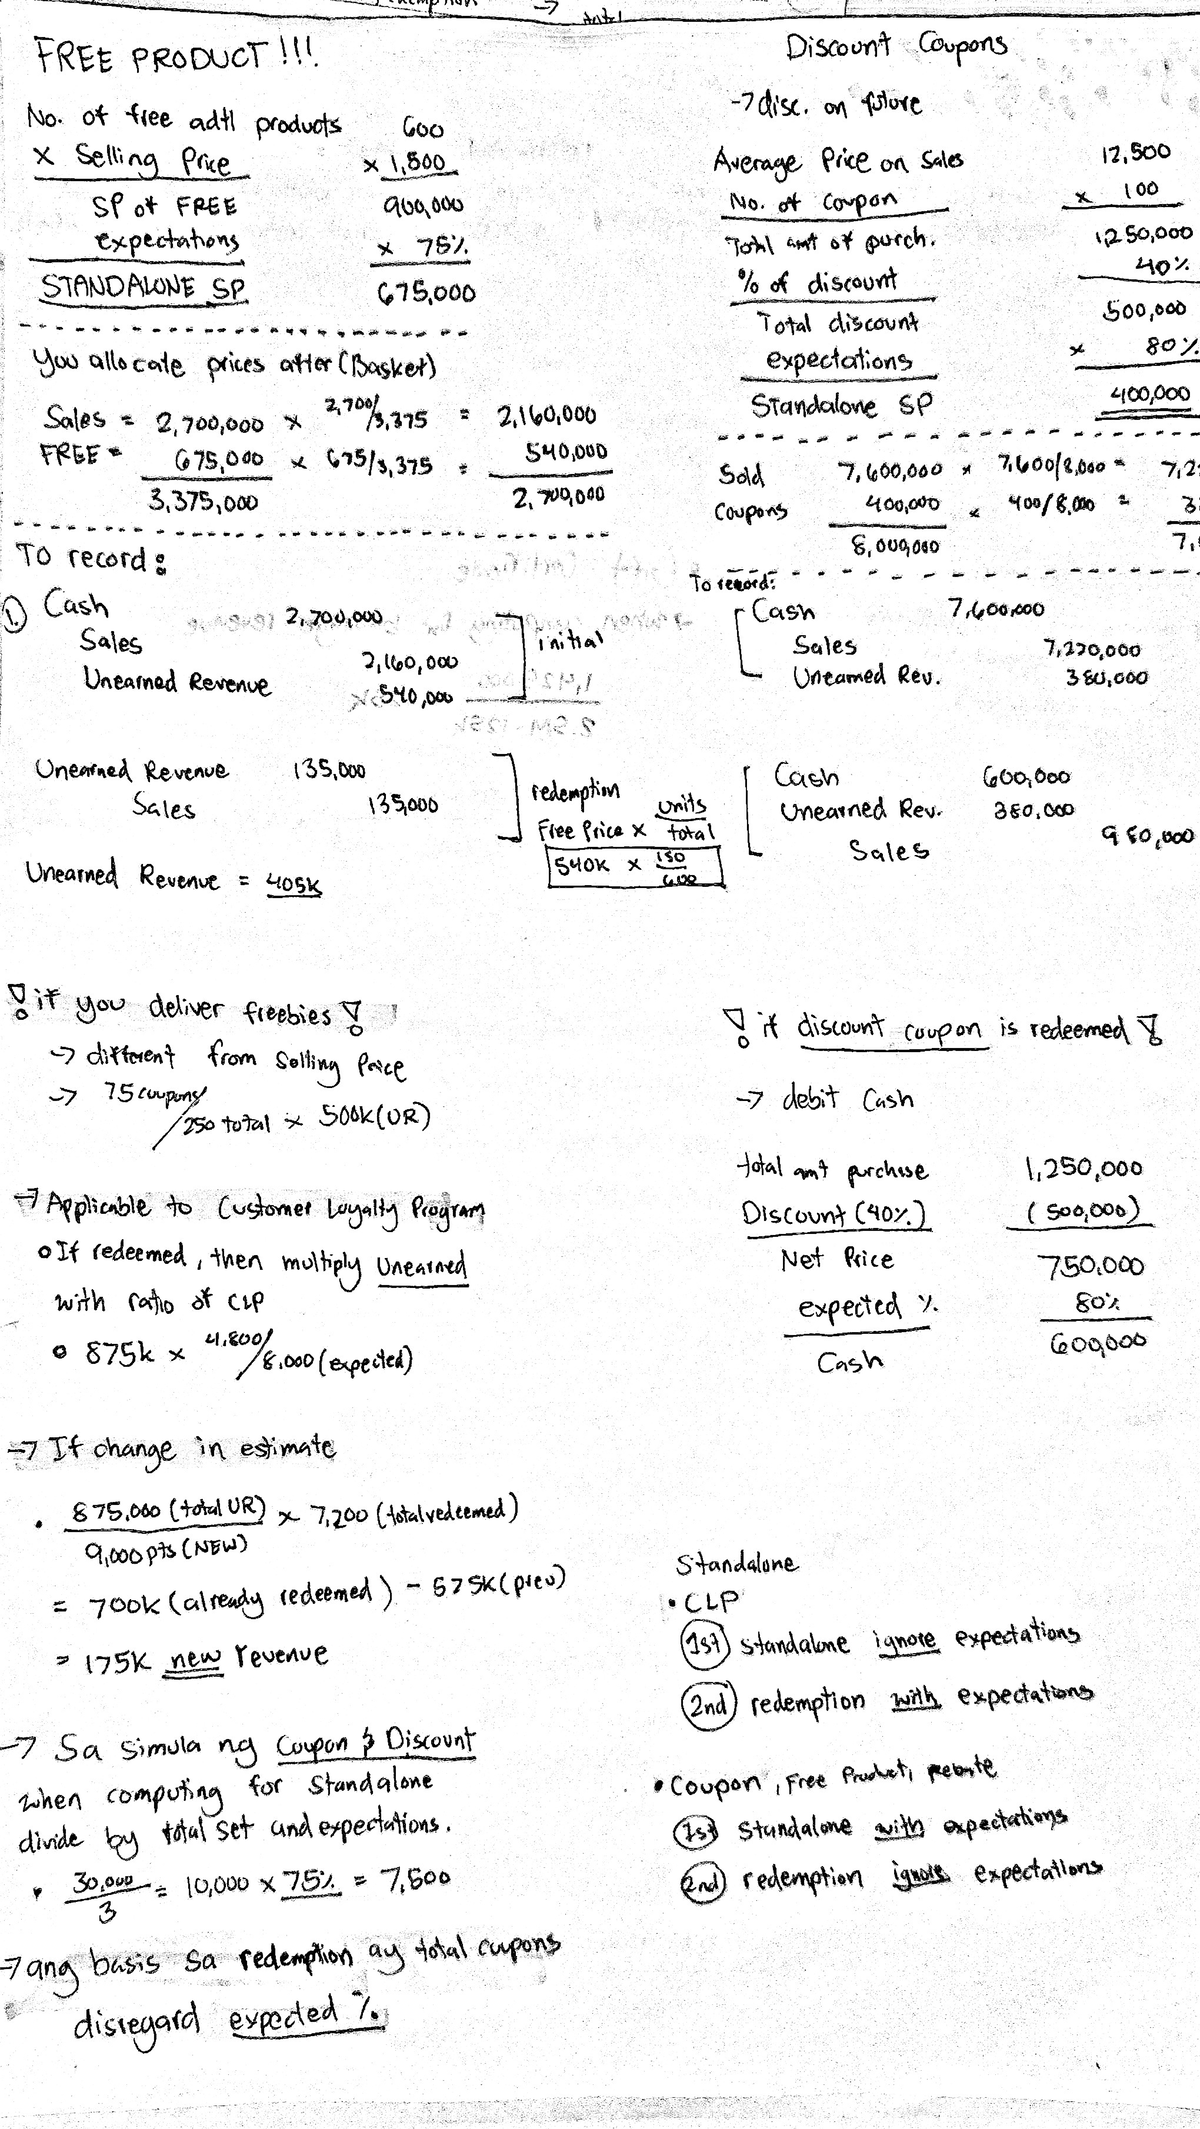 FREE PRODUCT !!!
No. of free adtl products 600
X Selling Price x 1,500
SP of FREE 900,000
expectations x 75%
STANDALONE SP 675,000
You allocate prices after (Basket)
Sales = 2,700,000 x 2,700/3,375 = 2,160,000
FREE = 675,000 x 675/3,375 = 540,000
3,375,000 2,700,000
To record:
1. Cash 2,700,000
Sales 2,160,000
Unearned Revenue 540,000
initial
Unearned Revenue 135,000
Sales 135,000
redemption
Free Price x units/total
540K x 150/600
Unearned Revenue = 405K
! if you deliver freebies !
→ different from Selling Price
→ 75 coupons/250 total x 500K (UR)
→ Applicable to Customer Loyalty Program
• If redeemed, then multiply Unearned
with ratio of CLP
• 875k x 4,800/8,000 (expected)
→ If change in estimate
• 875,000 (total UR) x 7,200 (total redeemed)
9,000 pts (NEW)
= 700K (already redeemed) - 525K (prev)
= 175K new revenue
→ Sa simula ng Coupon & Discount
when computing for Standalone
divide by total set and expectations.
• 30,000/3 = 10,000 x 75% = 7,500
→ ang basis sa redemption ay total coupons
disregard expected %
Discount Coupons
→ disc. on future
Average Price on Sales 12,500
No. of Coupon x 100
Total amt of purch. 1,250,000
% of discount 40%
Total discount 500,000
expectations x 80%
Standalone SP 400,000
Sold 7,600,000 x 7,600/8,000 = 7,2
Coupons 400,000 x 400/8,000 = 3
8,000,000 7,
To record:
Cash 7,600,000
Sales 7,220,000
Unearned Rev. 380,000
Cash 600,000
Unearned Rev. 380,000
Sales 980,000
! if discount coupon is redeemed !
→ debit Cash
total amt purchase 1,250,000
Discount (40%) (500,000)
Net Price 750,000
expected % 80%
Cash 600,000
Standalone
• CLP
1st standalone ignore expectations
2nd redemption with expectations
• Coupon, Free Product, Rebate
1st Standalone with expectations
2nd redemption ignore expectations